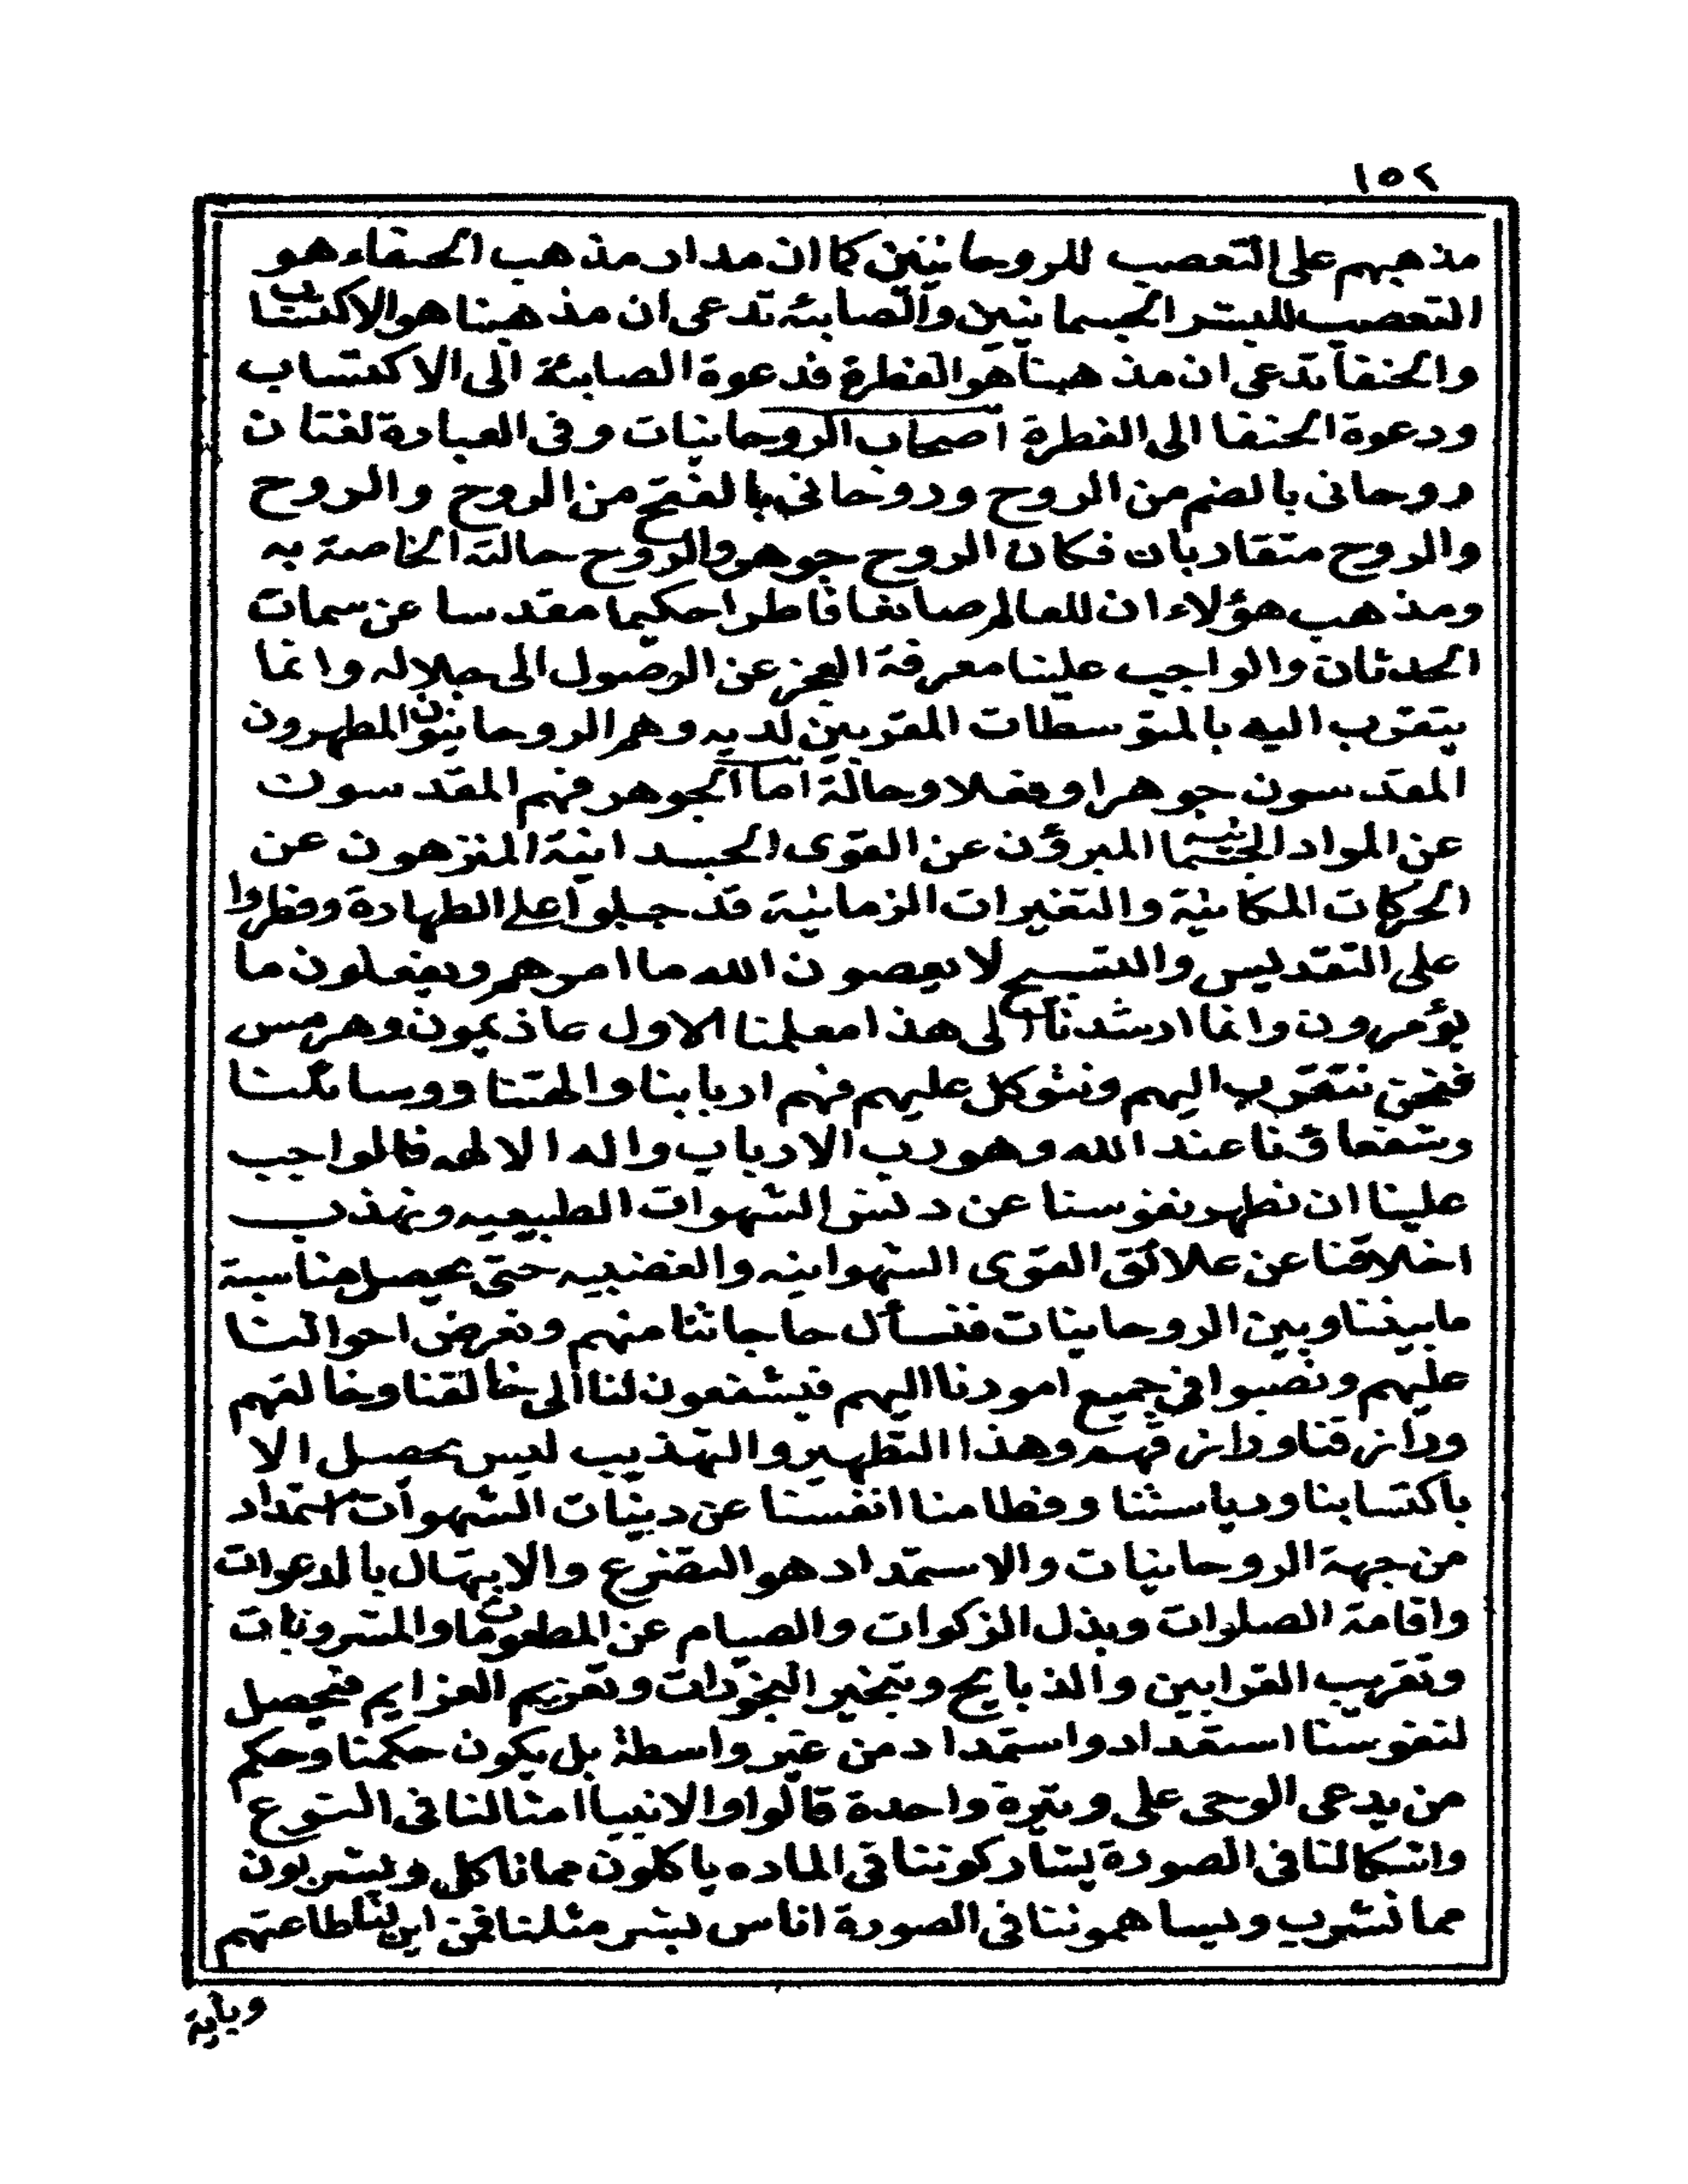 ١٥٢
مذهبهم على التعصب للروحانيين كما ان مدار مذهب الحنفاء هو
التعصب للبشر الجسمانيين والصابئة تدعى ان مذهبنا هو الاكتساب
والحنفا تدعى ان مذهبنا هو الفطرة فدعوة الصابئة الى الاكتساب
ودعوة الحنفا الى الفطرة اصحاب الروحانيات وفى العبارة لغتان
روحانى بالضم من الروح وروحانى بالفتح من الروح والروح
والروح متقاربان فكان الروح جوهر والروح حالته الخاصة به
ومذهب هؤلاء ان للعالم صانعا فاطرا حكيما مقدسا عن سمات
الحدثان والواجب علينا معرفة العجز عن الوصول الى جلاله وانما
يتقرب اليه بالمتوسطات المقربين لديه وهم الروحانيون المطهرون
المقدسون جوهرا وفعلا وحالة اما الجوهر فهم المقدسون
عن المواد الجسمانية المبرؤن عن القوى الجسدانية المنزهون عن
الحركات المكانية والتغيرات الزمانية قد جبلوا على الطهارة وفطروا
على التقديس والتسبيح لا يعصون الله ما امرهم ويفعلون ما
يؤمرون وانما ارشدنا الى هذا معلمنا الاول عاذيمون وهرمس
فنحن نتقرب اليهم ونتوكل عليهم فهم اربابنا والهتنا ووسائلنا
وشفعاؤنا عند الله وهو رب الارباب واله الالهه فالواجب
علينا ان نطهر نفوسنا عن دنس الشهوات الطبيعيه ونهذب
اخلاقنا عن علائق القوى الشهوانيه والغضبيه حتى يحصل مناسبة
ما بيننا وبين الروحانيات فنسأل حاجاتنا منهم ونعرض احوالنا
عليهم ونصبوا فى جميع امورنا اليهم فيشفعون لنا الى خالقنا وخالقهم
ورازقنا ورازقهم وهذا التطهير والتهذيب ليس يحصل الا
باكتسابنا ورياستنا وفطامنا انفسنا عن دينات الشهوات استمداد
من جهة الروحانيات والاستمداد هو التضرع والابتهال بالدعوات
واقامة الصلوات وبذل الزكوات والصيام عن المطعومات والمشروبات
وتقريب القرابين والذبايح وتبخير البخورات وتعزيم العزايم فيحصل
لنفوسنا استعداد واستمداد من غير واسطة بل يكون حكمنا وحكم
من يدعى الوحى على وتيرة واحدة قالوا والانبيا امثالنا فى النوع
واشكالنا فى الصورة يشاركوننا فى الماده ياكلون مما ناكل ويشربون
مما نشرب ويساهموننا فى الصورة اناس بشر مثلنا فمن اين لنا طاعتهم
وباية